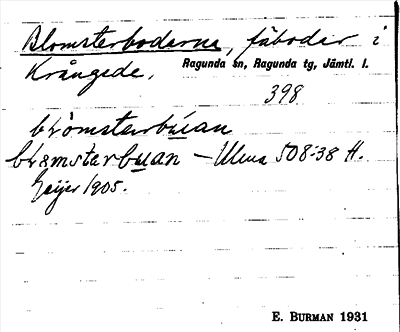 Blomsterboderna, fäbodar i
Krångede, Ragunda sn, Ragunda tg, Jämtl. l.
398
blomstarbúan
blɷmstarbuan – Ulma 508:38 H.
Geijer 1905.
E. BURMAN 1931